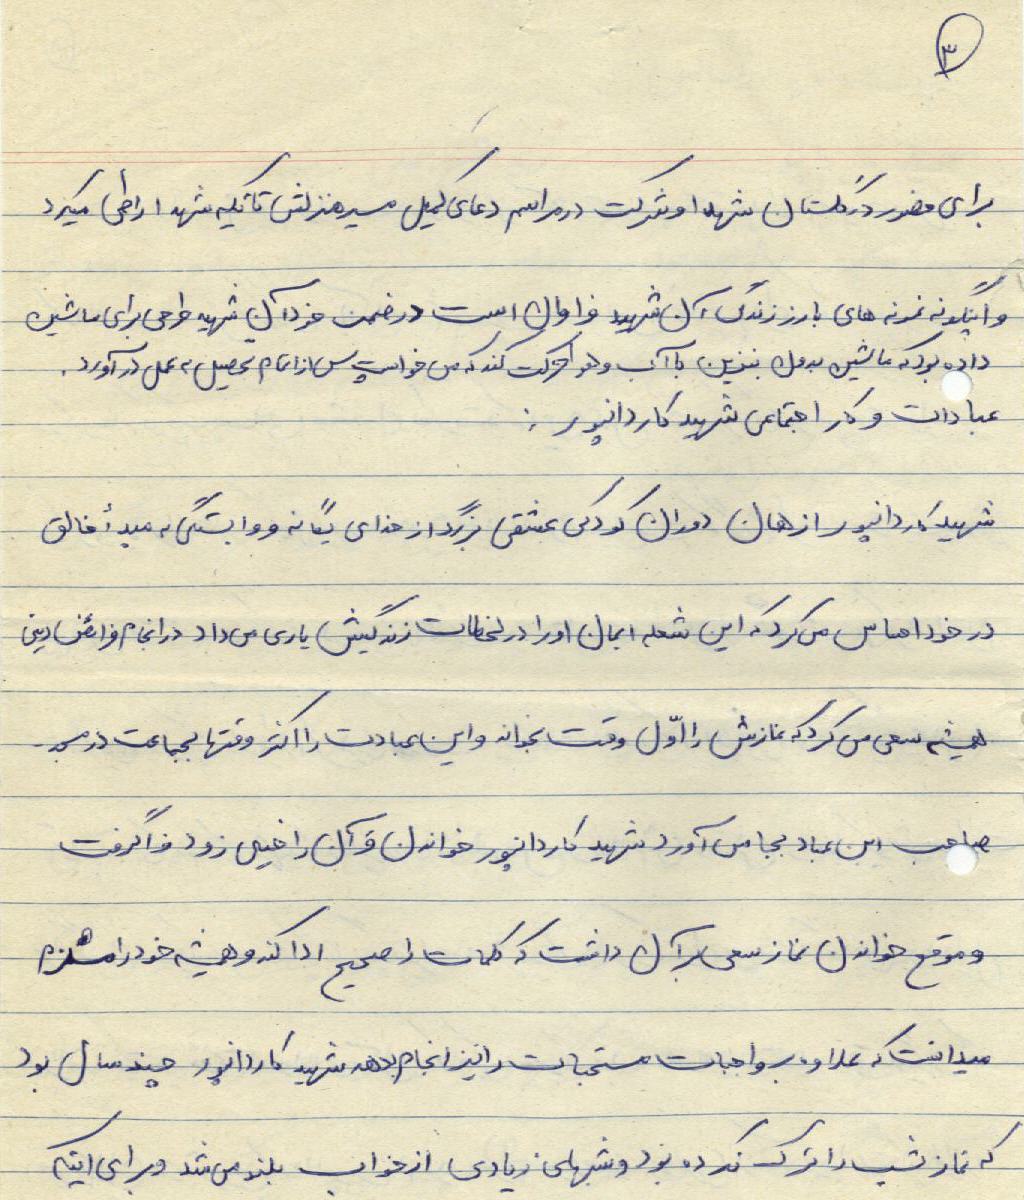 ۳
برای حضور در گلستان شهدا و شرکت در مراسم دعای کمیل مسیر منزلش تا تکیه شهدا را طی میکرد
و اینگونه نمونه های بارز زندگی آن شهید فراوان است در ضمن خود آن شهید طرحی برای ماشین
داده بود که ماشین بدون بنزین با آب و هوا حرکت کند که می خواست پس از اتمام تحصیل به عمل در آورد.
عبادات و کار اجتماعی شهید کاردانپور :
شهید کاردانپور از همان دوران کودکی عشقی بزرگ از خدای یگانه و وابستگی به مبدأ خالق
در خود احساس می کرد که این شعله ایمان او را در لحظات زندگیش یاری می داد در انجام فرائض دینی
همیشه سعی می کرد که نمازش را اوّل وقت بخواند و این عبادت را اکثر وقتها بجماعت در مسجد
صاحب این عباد بجا می آورد شهید کاردانپور خواندن قرآن را خیلی زود فرا گرفت
و موقع خواندن نماز سعی بر آن داشت که کلمات را صحیح ادا کند و همیشه خود را ملزم
میدانست که علاوه بر واجبات مستحبات را نیز انجام بدهد شهید کاردانپور چند سال بود
که نماز شب را ترک نکرده بود و شبهای زیادی از خواب بلند می شد و برای اینکه